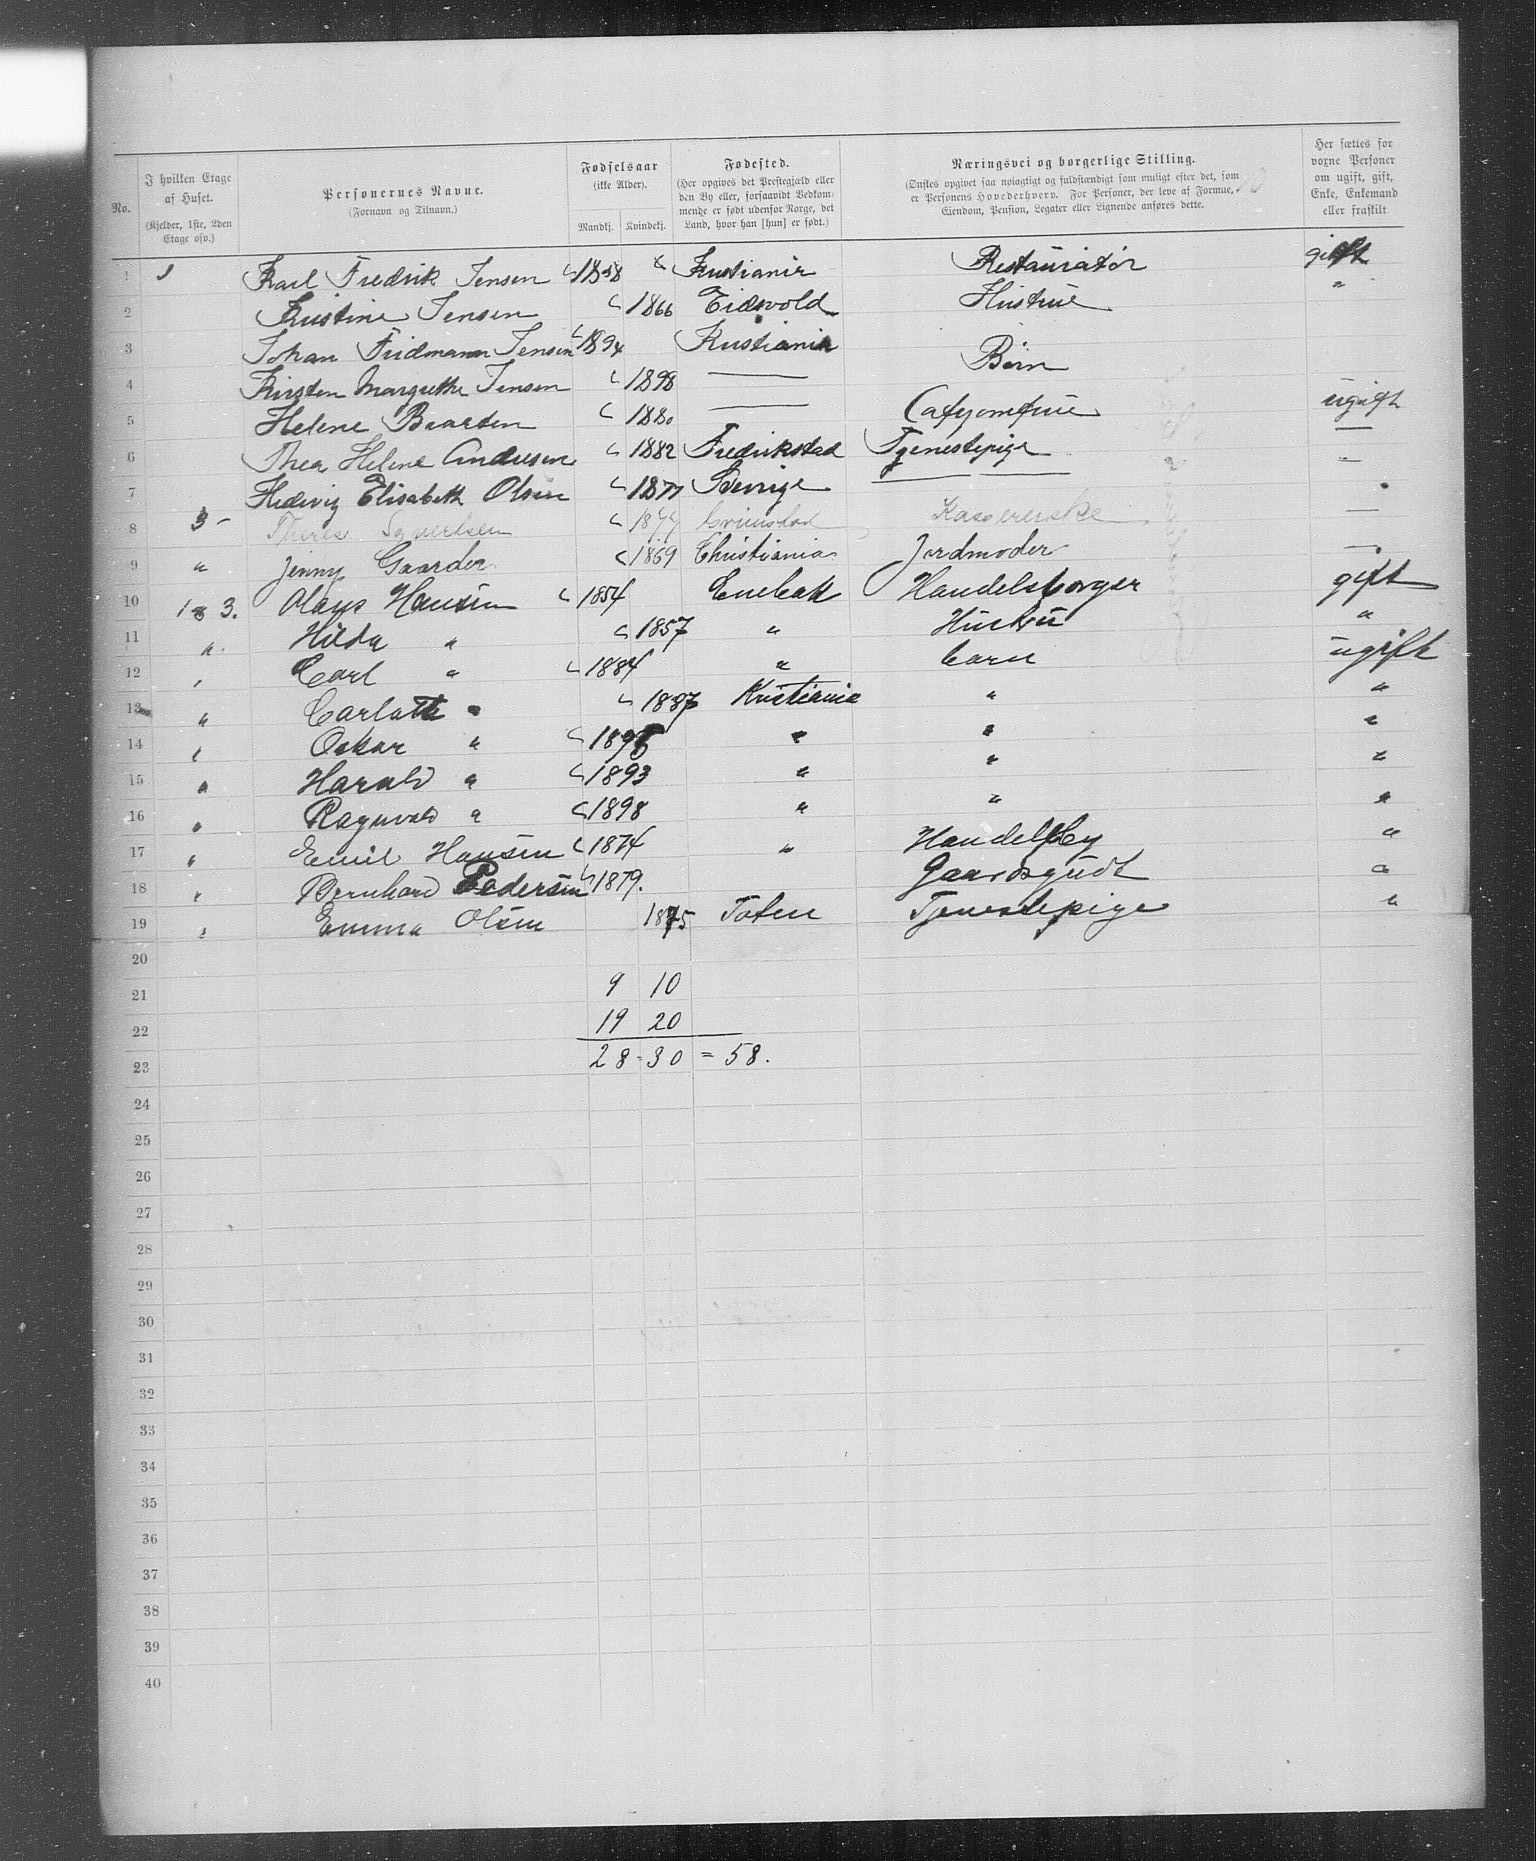 No.
I hvilken Etage af Huset. (Kjelder, 1ste, 2den Etage osv.)
Personernes Navne. (Fornavn og Tilnavn.)
Fødselsaar (ikke Alder). Mandkj. Kvindekj.
Fødested. (Her opgives det Prestegjæld eller den By eller, forsaavidt Vedkommende er født udenfor Norge, det Land, hvor han [hun] er født.)
Næringsvei og borgerlige Stilling. (Ønskes opgivet saa nøiagtigt og fuldstændigt som muligt efter det, som er Personens Hovederhverv. For Personer, der leve af Formue, Eiendom, Pension, Legater eller Lignende anføres dette.
Her sættes for voxne Personer om ugift, gift, Enke, Enkemand eller fraskilt
1 1 Karl Fredrik Jensen 1858 Kristiania Restauratør gift
2 Kristine Jensen 1866 Eidsvold Hustrue "
3 Johan Fridmann Jensen 1894 Kristiania
4 Kirsten Margrethe Jensen 1898 — Børn
5 Helene 1880 — Cafejomfrue ugift
6 Thea Helene Andersen 1882 Fredrikstad Tjenestepige —
7 Hedevig Elisabeth Olsen 1877 Sverige — "
8 3 - Syvertsen Grimstad Kassererske —
9 " Jenny Gaarder 1869 Christiania Jordmoder —
10 1 & 3. Olaus Hansen 1854 Enebak Handelsborger gift
11 " Hilda " 1857 " Hustru "
12 " Carl " 1884 " barn ugift
13 " Carlotte " 1887 Kristiania " "
14 " Oskar " " " "
15 " Harald " 1893 " " "
16 " Ragnvald " 1898 " " "
17 " Emil Hansen 1874 " "
18 " Bernhard Pedersen 1879. Gaardsgudt "
19 " Emma Olsen 1875 Toten Tjenestepige "
20
21 9 10
22 19 20
23 28 - 30 = 58.
24
25
26
27
28
29
30
31
32
33
34
35
36
37
38
39
40